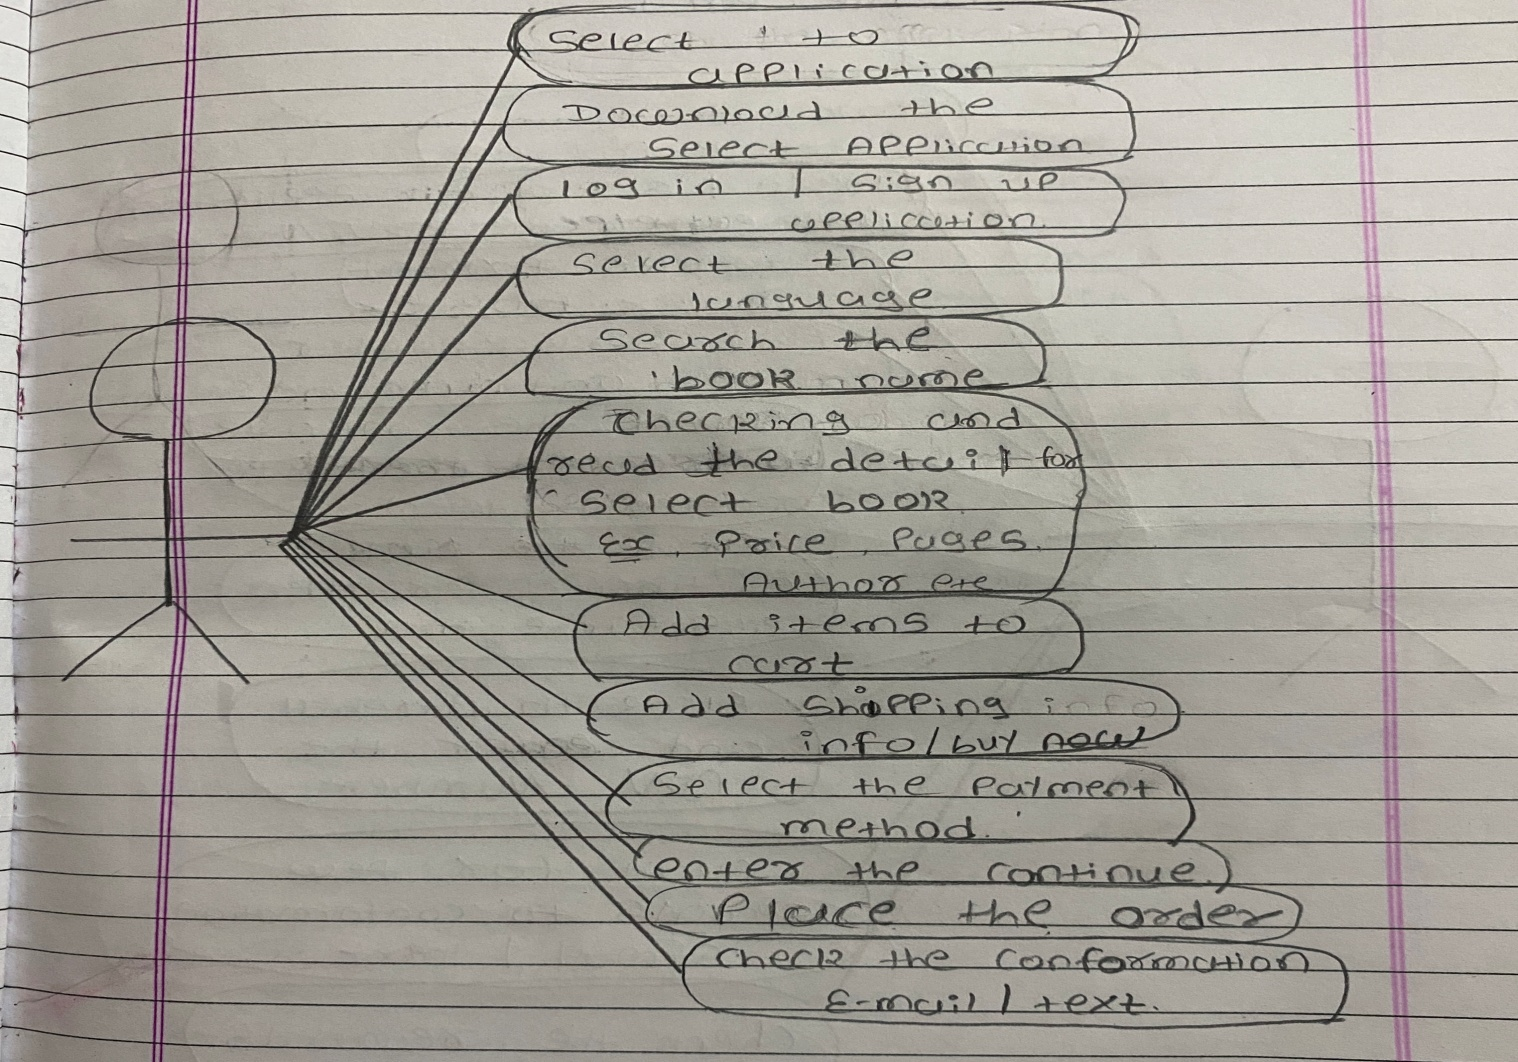 Select to
application
Download the
Select Application
Log in / Sign up
application.
Select the
language
Search the
book name
Checking and
read the detail for
Select book
Ex. Price, Pages.
Author etc
Add items to
cart
Add Shipping info
info/buy now
Select the Payment
method.
enter the continue.
Place the order
Check the Conformation
E-mail / text.